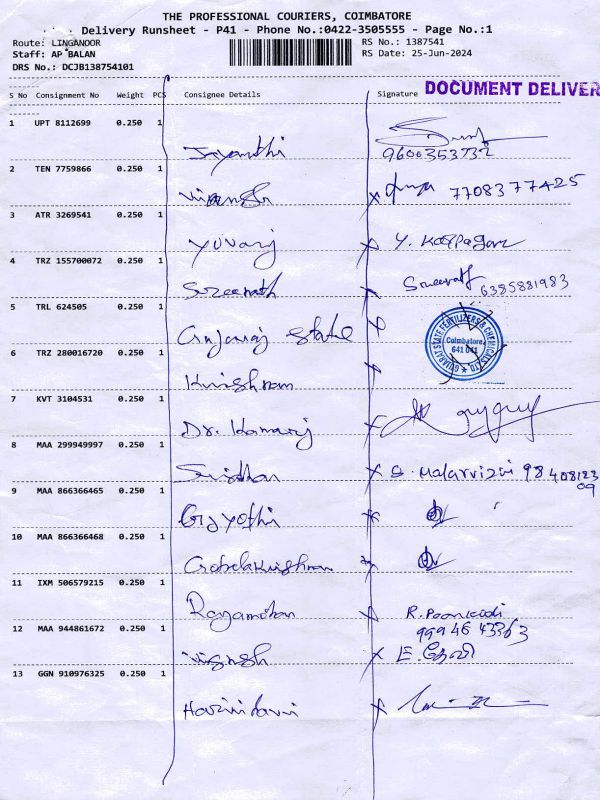 THE PROFESSIONAL COURIERS, COIMBATORE
Delivery Runsheet - P41 - Phone No.:0422-3505555 - Page No.:1
Route: LINGANOOR RS No.: 1387541
Staff: AP BALAN RS Date: 25-Jun-2024
DRS No.: DCJB138754101
DOCUMENT DELIVER
S No Consignment No Weight PCS Consignee Details Signature
1 UPT 8112699 0.250 1
Jayanthi 9600353732
2 TEN 7759866 0.250 1
7708377425
3 ATR 3269541 0.250 1
Yuvaraj Y. Kalpagam
4 TRZ 155700072 0.250 1
Sreenath Sreenath 6385881983
5 TRL 624505 0.250 1
Gujaraj State
GUJARAT STATE FERTILIZERS & CHEMICALS LTD
Coimbatore
641 041
6 TRZ 280016720 0.250 1
Krishnam
7 KVT 3104531 0.250 1
Dr. Kamaraj
8 MAA 299949997 0.250 1
S. Malarvizhi 98408123
09
9 MAA 866366465 0.250 1
10 MAA 866366468 0.250 1
Gobalakrishnan
11 IXM 506579215 0.250 1
R. Poonkodi
9994643363
12 MAA 944861672 0.250 1
Vignesh E. தேவி
13 GGN 910976325 0.250 1